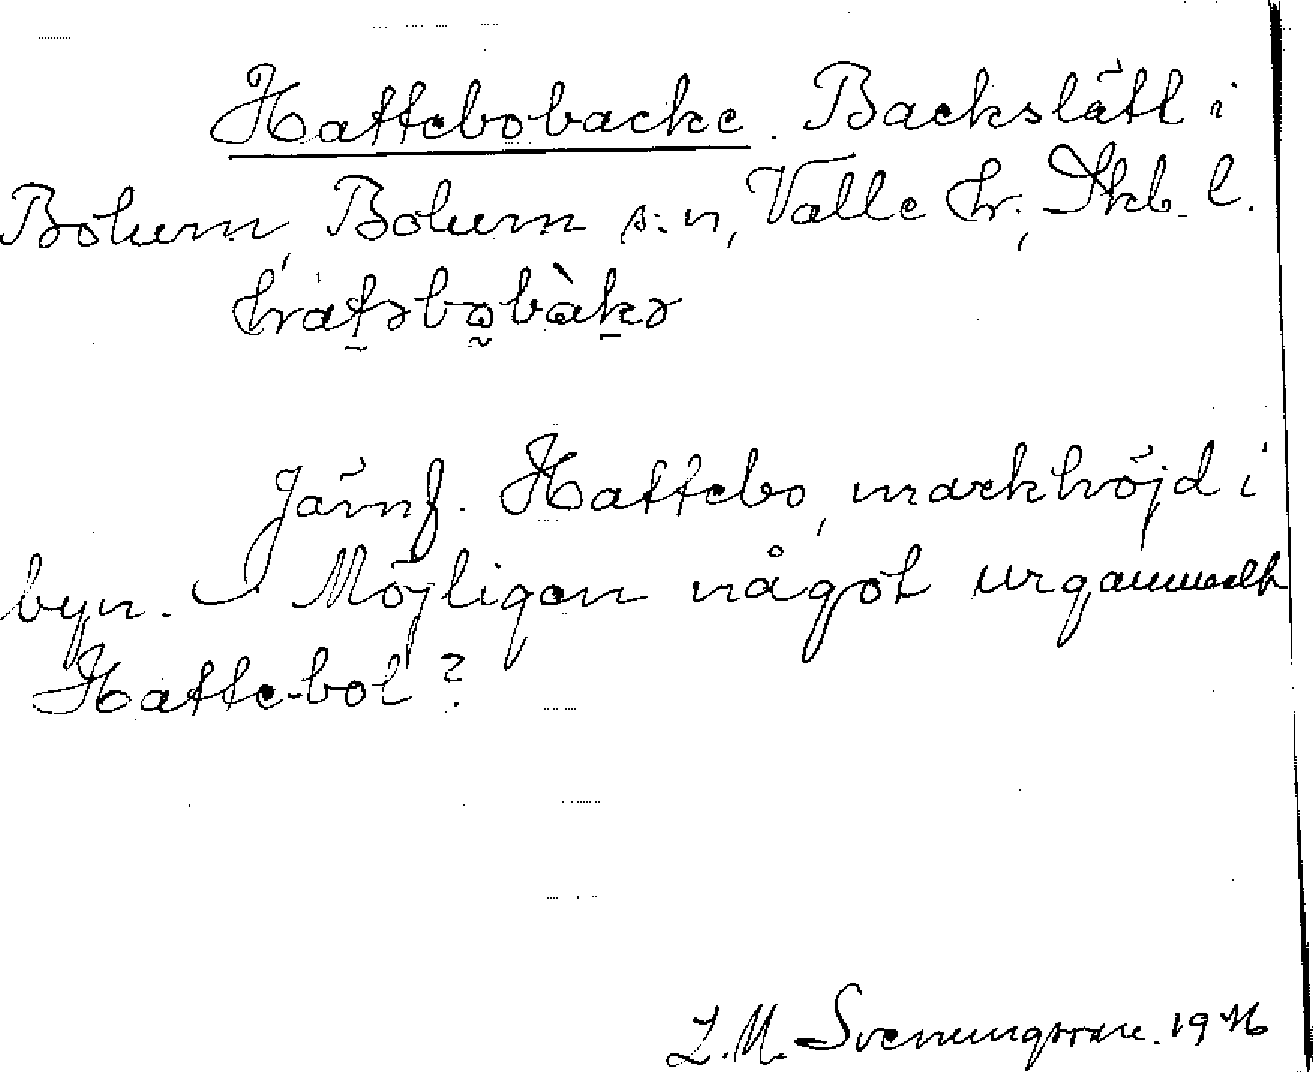 Hattebobacke. Backslätt i
Bolum, Bolum s:n, Valle hr; Skb. l.
Järnf. Hattebo, markhöjd i
byn. Möjligen något urgammalt
Hatte-bol?
L.M. Svenungsson. 1946